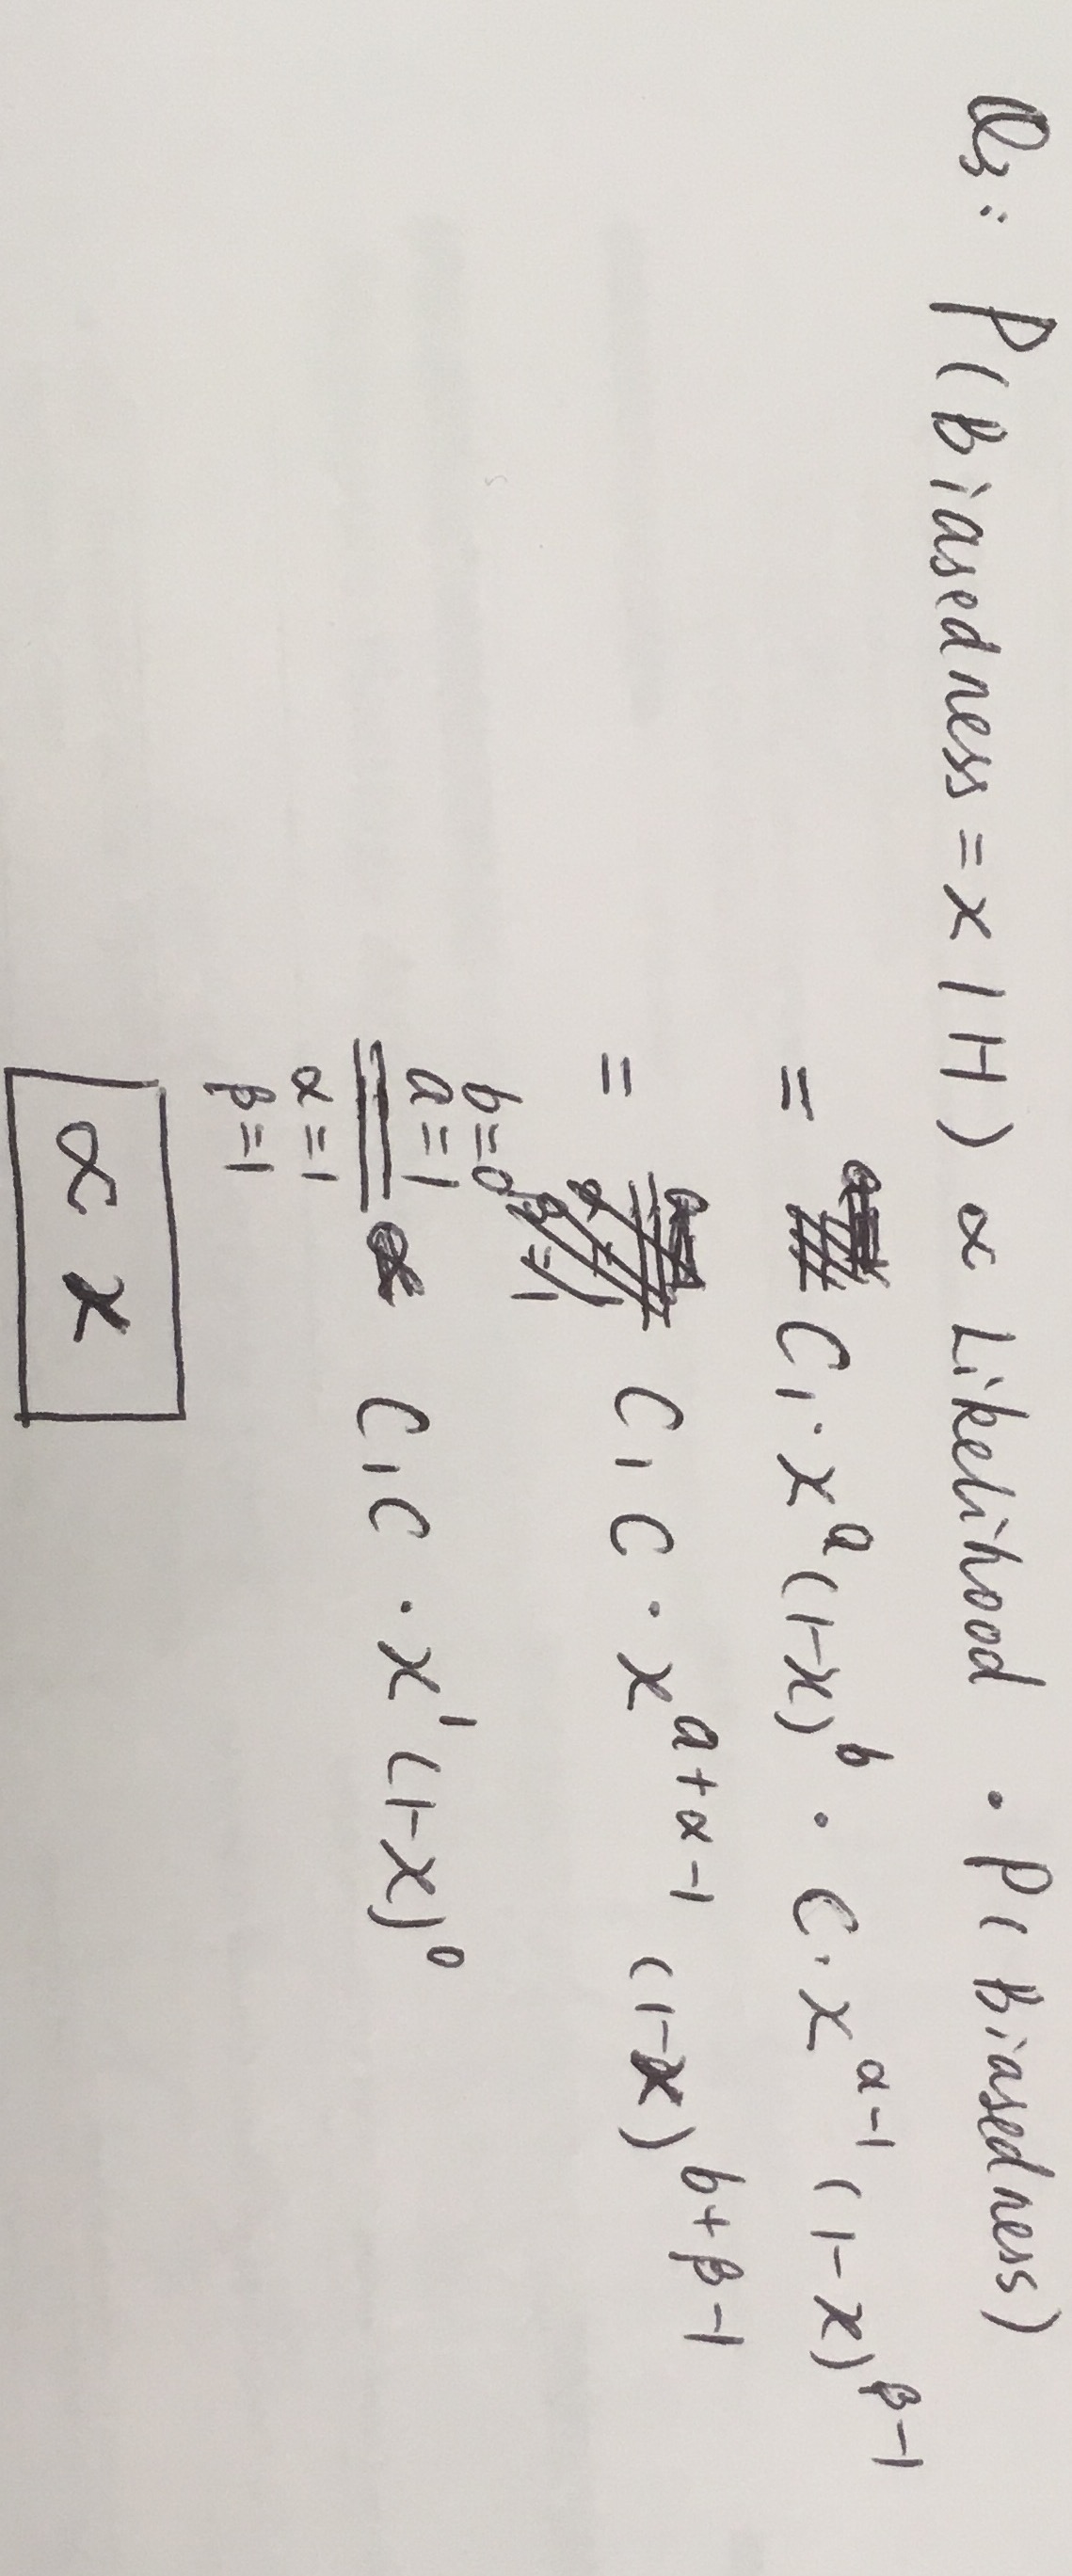 Q3: P(Biasedness = x | H) ∝ Likelihood · P(Biasedness)
= C₁ · x^a (1-x)^b · C · x^(α-1) (1-x)^(β-1)
= C₁ C · x^(a+α-1) (1-x)^(b+β-1)
α = 1
β = 1
b = 0
a = 1
∝ C₁ C · x¹ (1-x)⁰
α = 1
β = 1
∝ x